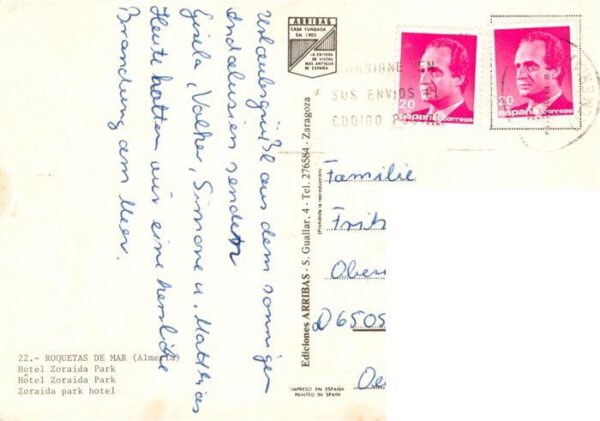 Urlaubsgrüße aus dem sonnigen
Andalusien senden
Gisela, Volker, Simone u. Matthias
Heute hatten wir eine herrliche
Brandung am Meer.
22.- ROQUETAS DE MAR (Almería)
Hotel Zoraida Park
Hôtel Zoraida Park
Zoraida park hotel
ARRIBAS
CASA FUNDADA
EN 1905
LA EDITORA
DE VISTAS
MAS ANTIGUA
DE ESPAÑA
Ediciones ARRIBAS - S. Guallar, 4 - Tel. 276584 - Zaragoza
(Prohibida la reproducción)
IMPRESO EN ESPAÑA
PRINTED IN SPAIN
CONSIGNE EN
SUS ENVIOS EL
CODIGO
20
españa correos
20
españa correos
Familie
Fritz
Ober
D6505